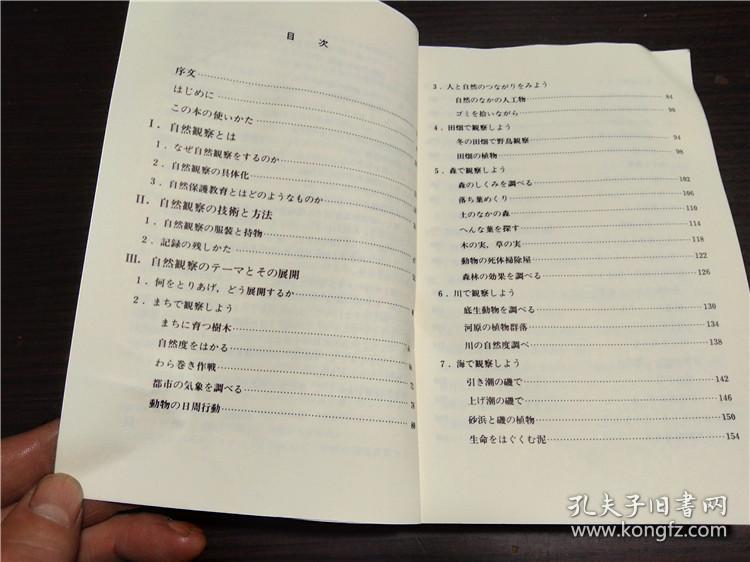 目 次
序文
はじめに
この本の使いかた
I. 自然観察とは
1. なぜ自然観察をするのか
2. 自然観察の具体化
3. 自然保護教育とはどのようなものか
II. 自然観察の技術と方法
1. 自然観察の服装と持物
2. 記録の残しかた
III. 自然観察のテーマとその展開
1. 何をとりあげ,どう展開するか
2. まちで観察しよう
まちに育つ樹木
自然度をはかる
わら巻き作戦 72
都市の気象を調べる 78
動物の日周行動 80
3. 人と自然のつながりをみよう
自然のなかの人工物 84
ゴミを拾いながら 90
4. 田畑で観察しよう
冬の田畑で野鳥観察 94
田畑の植物 98
5. 森で観察しよう
森のしくみを調べる 102
落ち葉めくり 106
土のなかの森 110
へんな葉を探す 114
木の実,草の実 118
動物の死体掃除屋 122
森林の効果を調べる 126
6. 川で観察しよう
底生動物を調べる 130
河原の植物群落 134
川の自然度調べ 138
7. 海で観察しよう
引き潮の磯で 142
上げ潮の磯で 146
砂浜と磯の植物 150
生命をはぐくむ泥 154
孔夫子旧书网
www.kongfz.com